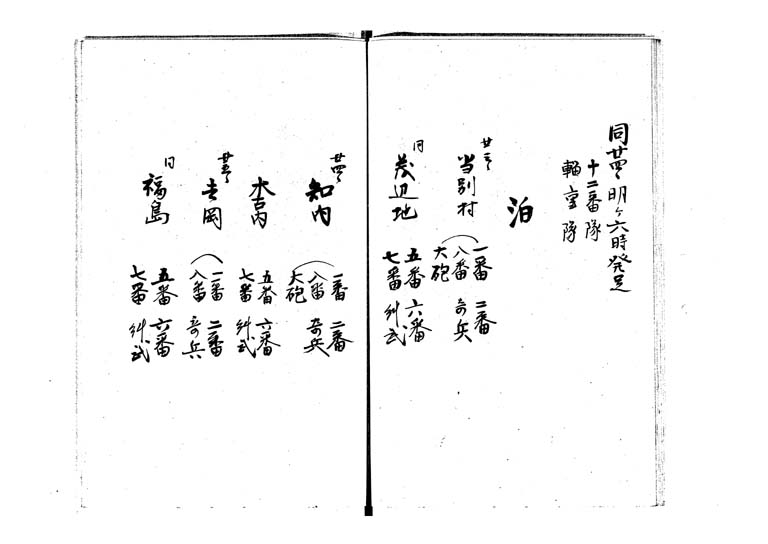 同廿四日明ケ六時発足
十二番隊
輜重隊
泊
廿三日
当別村
一番 二番
八番 奇兵
大砲
同
茂辺地
五番 六番
七番 糾武
廿四日
知内
一番 二番
八番 奇兵
大砲
木古内
五番 六番
七番 糾武
廿五日
吉岡
一番 二番
八番 奇兵
同
福島
五番 六番
七番 糾武